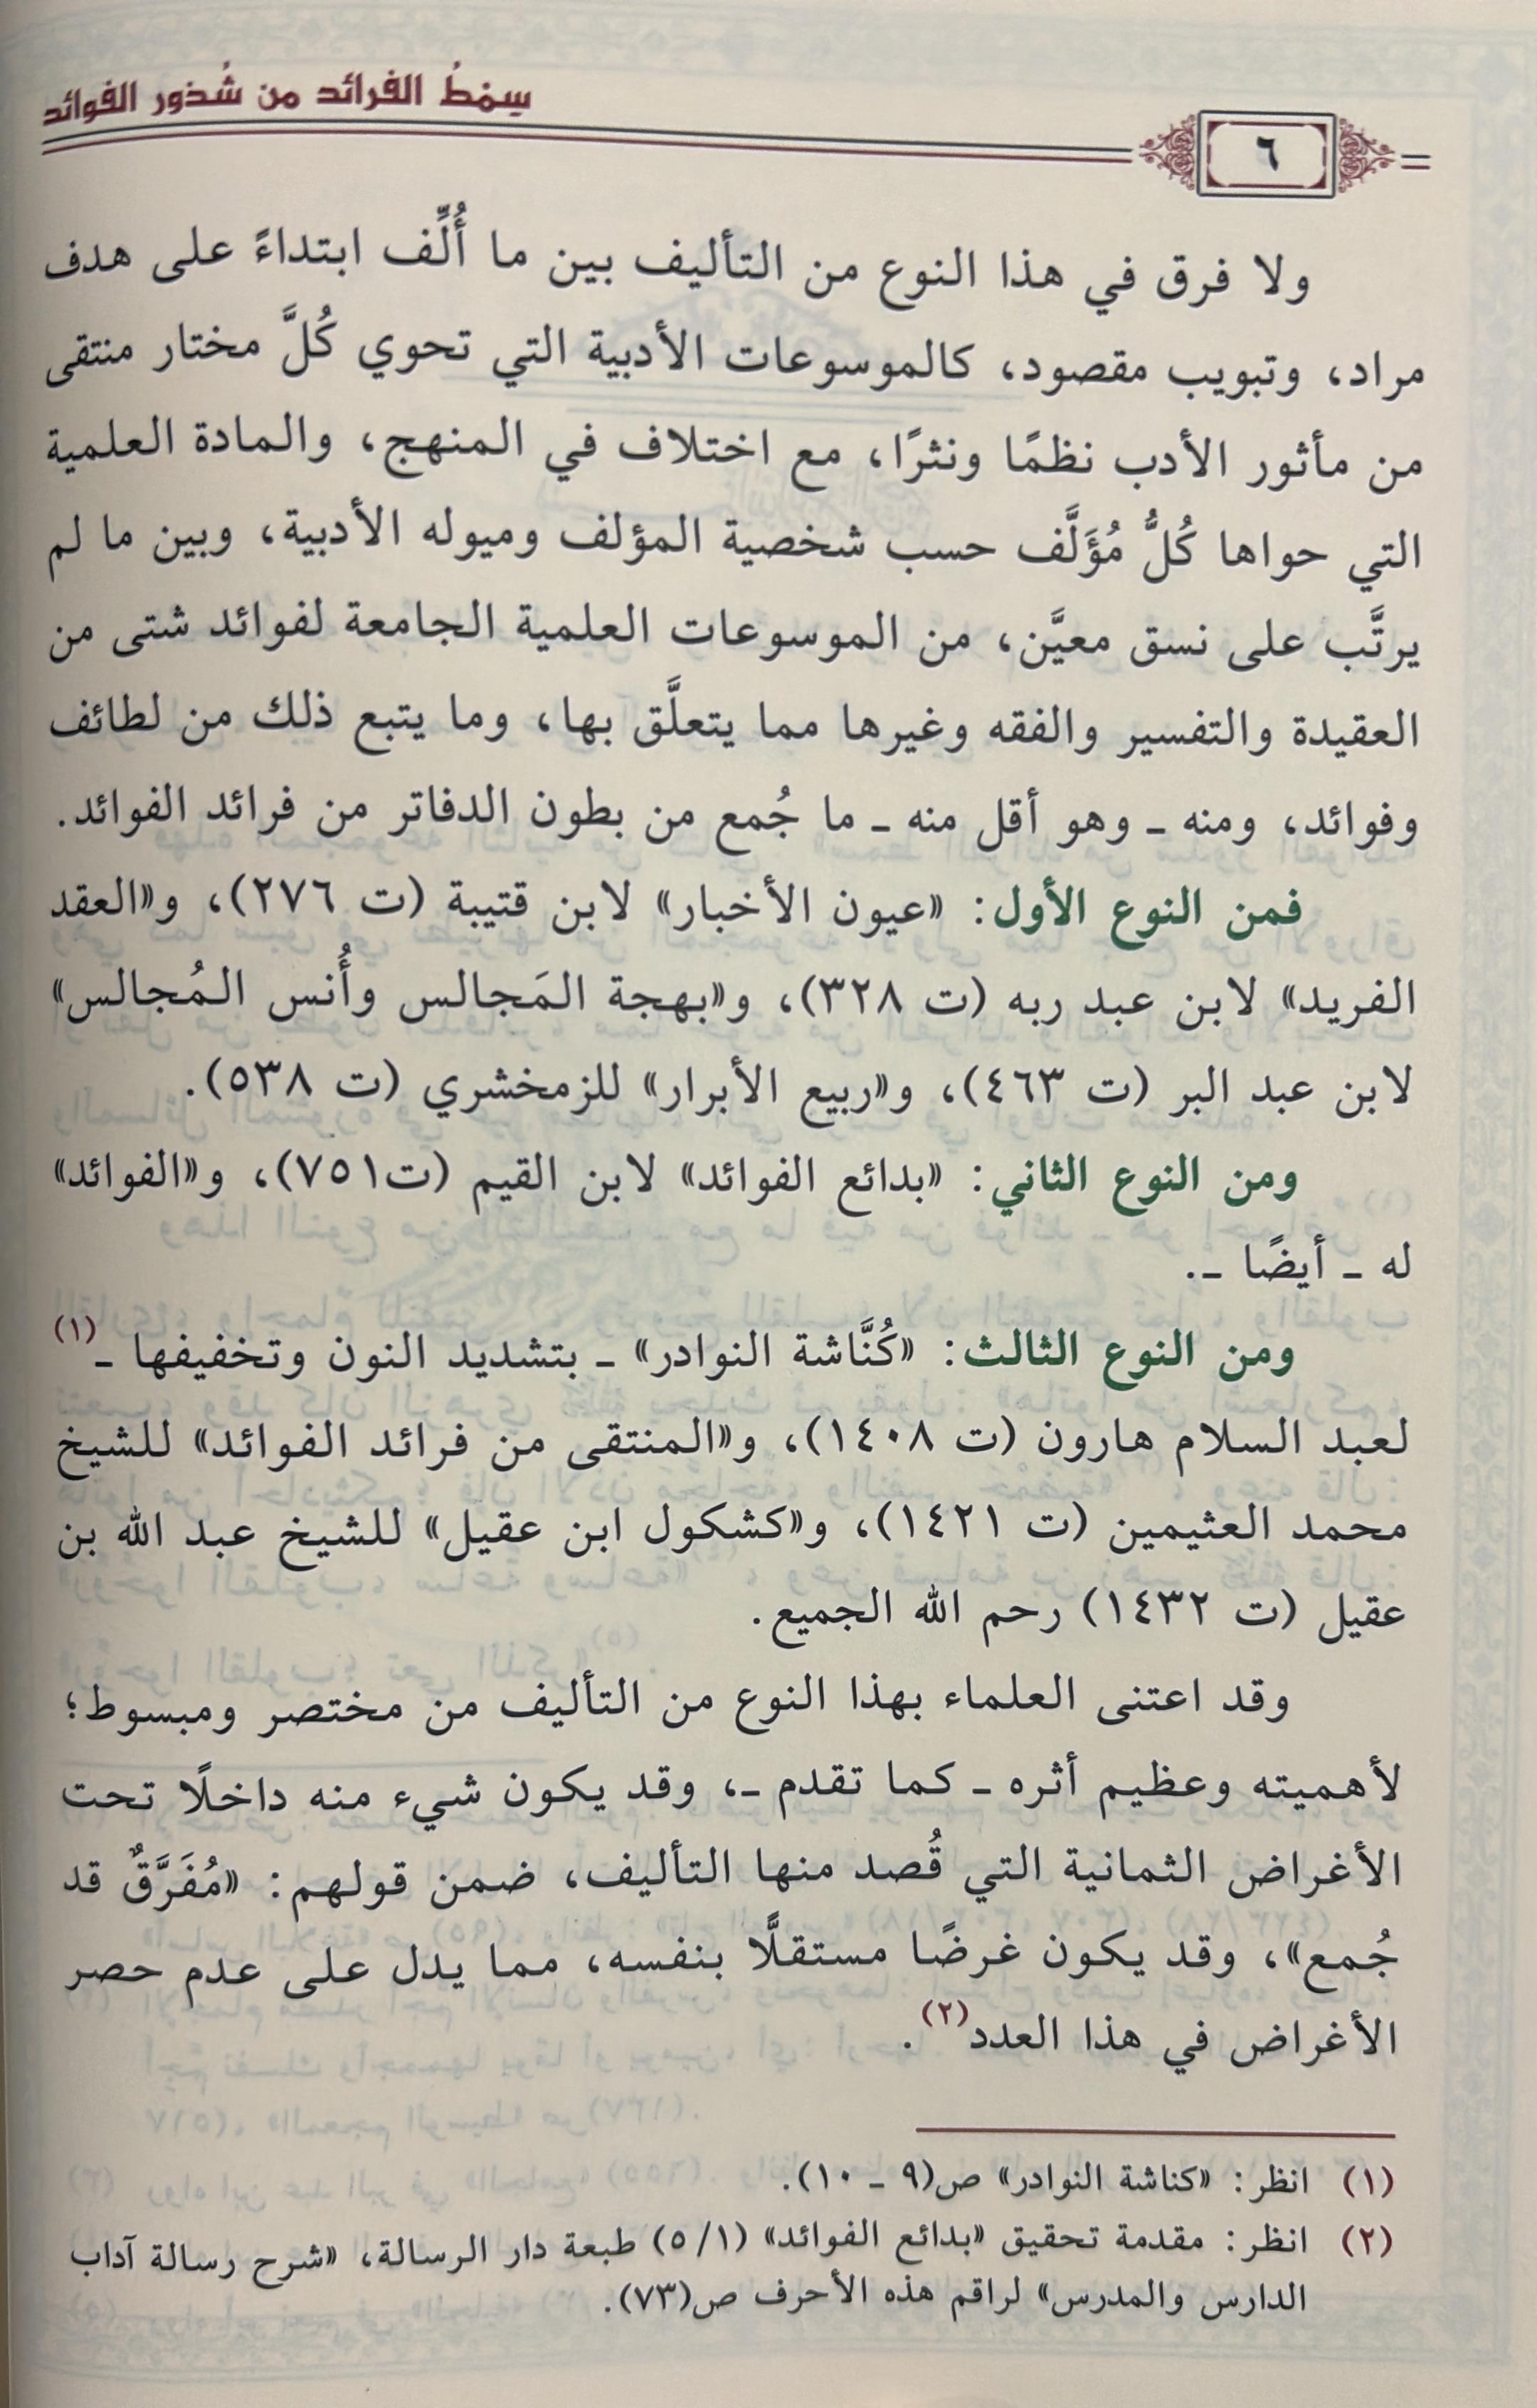 سِمْطُ الفرائد من شُذور الفوائد
٦
ولا فرق في هذا النوع من التأليف بين ما أُلِّف ابتداءً على هدف
مراد، وتبويب مقصود، كالموسوعات الأدبية التي تحوي كُلَّ مختار منتقى
من مأثور الأدب نظمًا ونثرًا، مع اختلاف في المنهج، والمادة العلمية
التي حواها كُلُّ مُؤَلَّف حسب شخصية المؤلف وميوله الأدبية، وبين ما لم
يرتَّب على نسق معيَّن، من الموسوعات العلمية الجامعة لفوائد شتى من
العقيدة والتفسير والفقه وغيرها مما يتعلَّق بها، وما يتبع ذلك من لطائف
وفوائد، ومنه ـ وهو أقل منه ـ ما جُمع من بطون الدفاتر من فرائد الفوائد.
فمن النوع الأول: «عيون الأخبار» لابن قتيبة (ت ٢٧٦)، و«العقد
الفريد» لابن عبد ربه (ت ٣٢٨)، و«بهجة المَجالس وأُنس المُجالس»
لابن عبد البر (ت ٤٦٣)، و«ربيع الأبرار» للزمخشري (ت ٥٣٨).
ومن النوع الثاني: «بدائع الفوائد» لابن القيم (ت٧٥١)، و«الفوائد»
له ـ أيضًا ـ.
ومن النوع الثالث: «كُنَّاشة النوادر» ـ بتشديد النون وتخفيفها ـ(١)
لعبد السلام هارون (ت ١٤٠٨)، و«المنتقى من فرائد الفوائد» للشيخ
محمد العثيمين (ت ١٤٢١)، و«كشكول ابن عقيل» للشيخ عبد الله بن
عقيل (ت ١٤٣٢) رحم الله الجميع.
وقد اعتنى العلماء بهذا النوع من التأليف من مختصر ومبسوط؛
لأهميته وعظيم أثره ـ كما تقدم ـ، وقد يكون شيء منه داخلًا تحت
الأغراض الثمانية التي قُصد منها التأليف، ضمن قولهم: «مُفَرَّقٌ قد
جُمع»، وقد يكون غرضًا مستقلًّا بنفسه، مما يدل على عدم حصر
الأغراض في هذا العدد(٢).
(١) انظر: «كناشة النوادر» ص(٩ ـ ١٠).
(٢) انظر: مقدمة تحقيق «بدائع الفوائد» (١/ ٥) طبعة دار الرسالة، «شرح رسالة آداب
الدارس والمدرس» لراقم هذه الأحرف ص(٧٣).